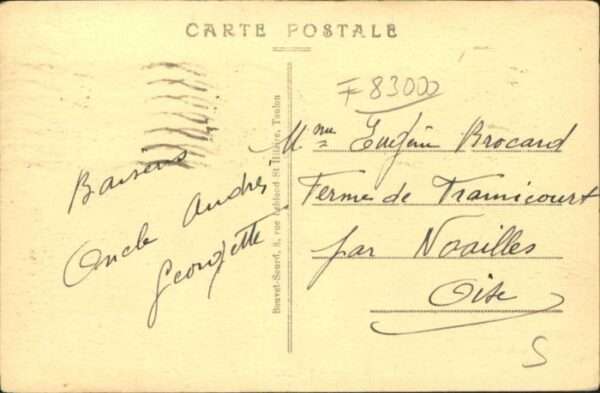 CARTE POSTALE
F 83000
Baisers
Oncle André,
Georgette
Bouvet-Sourd, 8, rue St Hilaire, Toulon
Mme Eugène Brocard
Ferme de Tramicourt
par Noailles
Oise
S